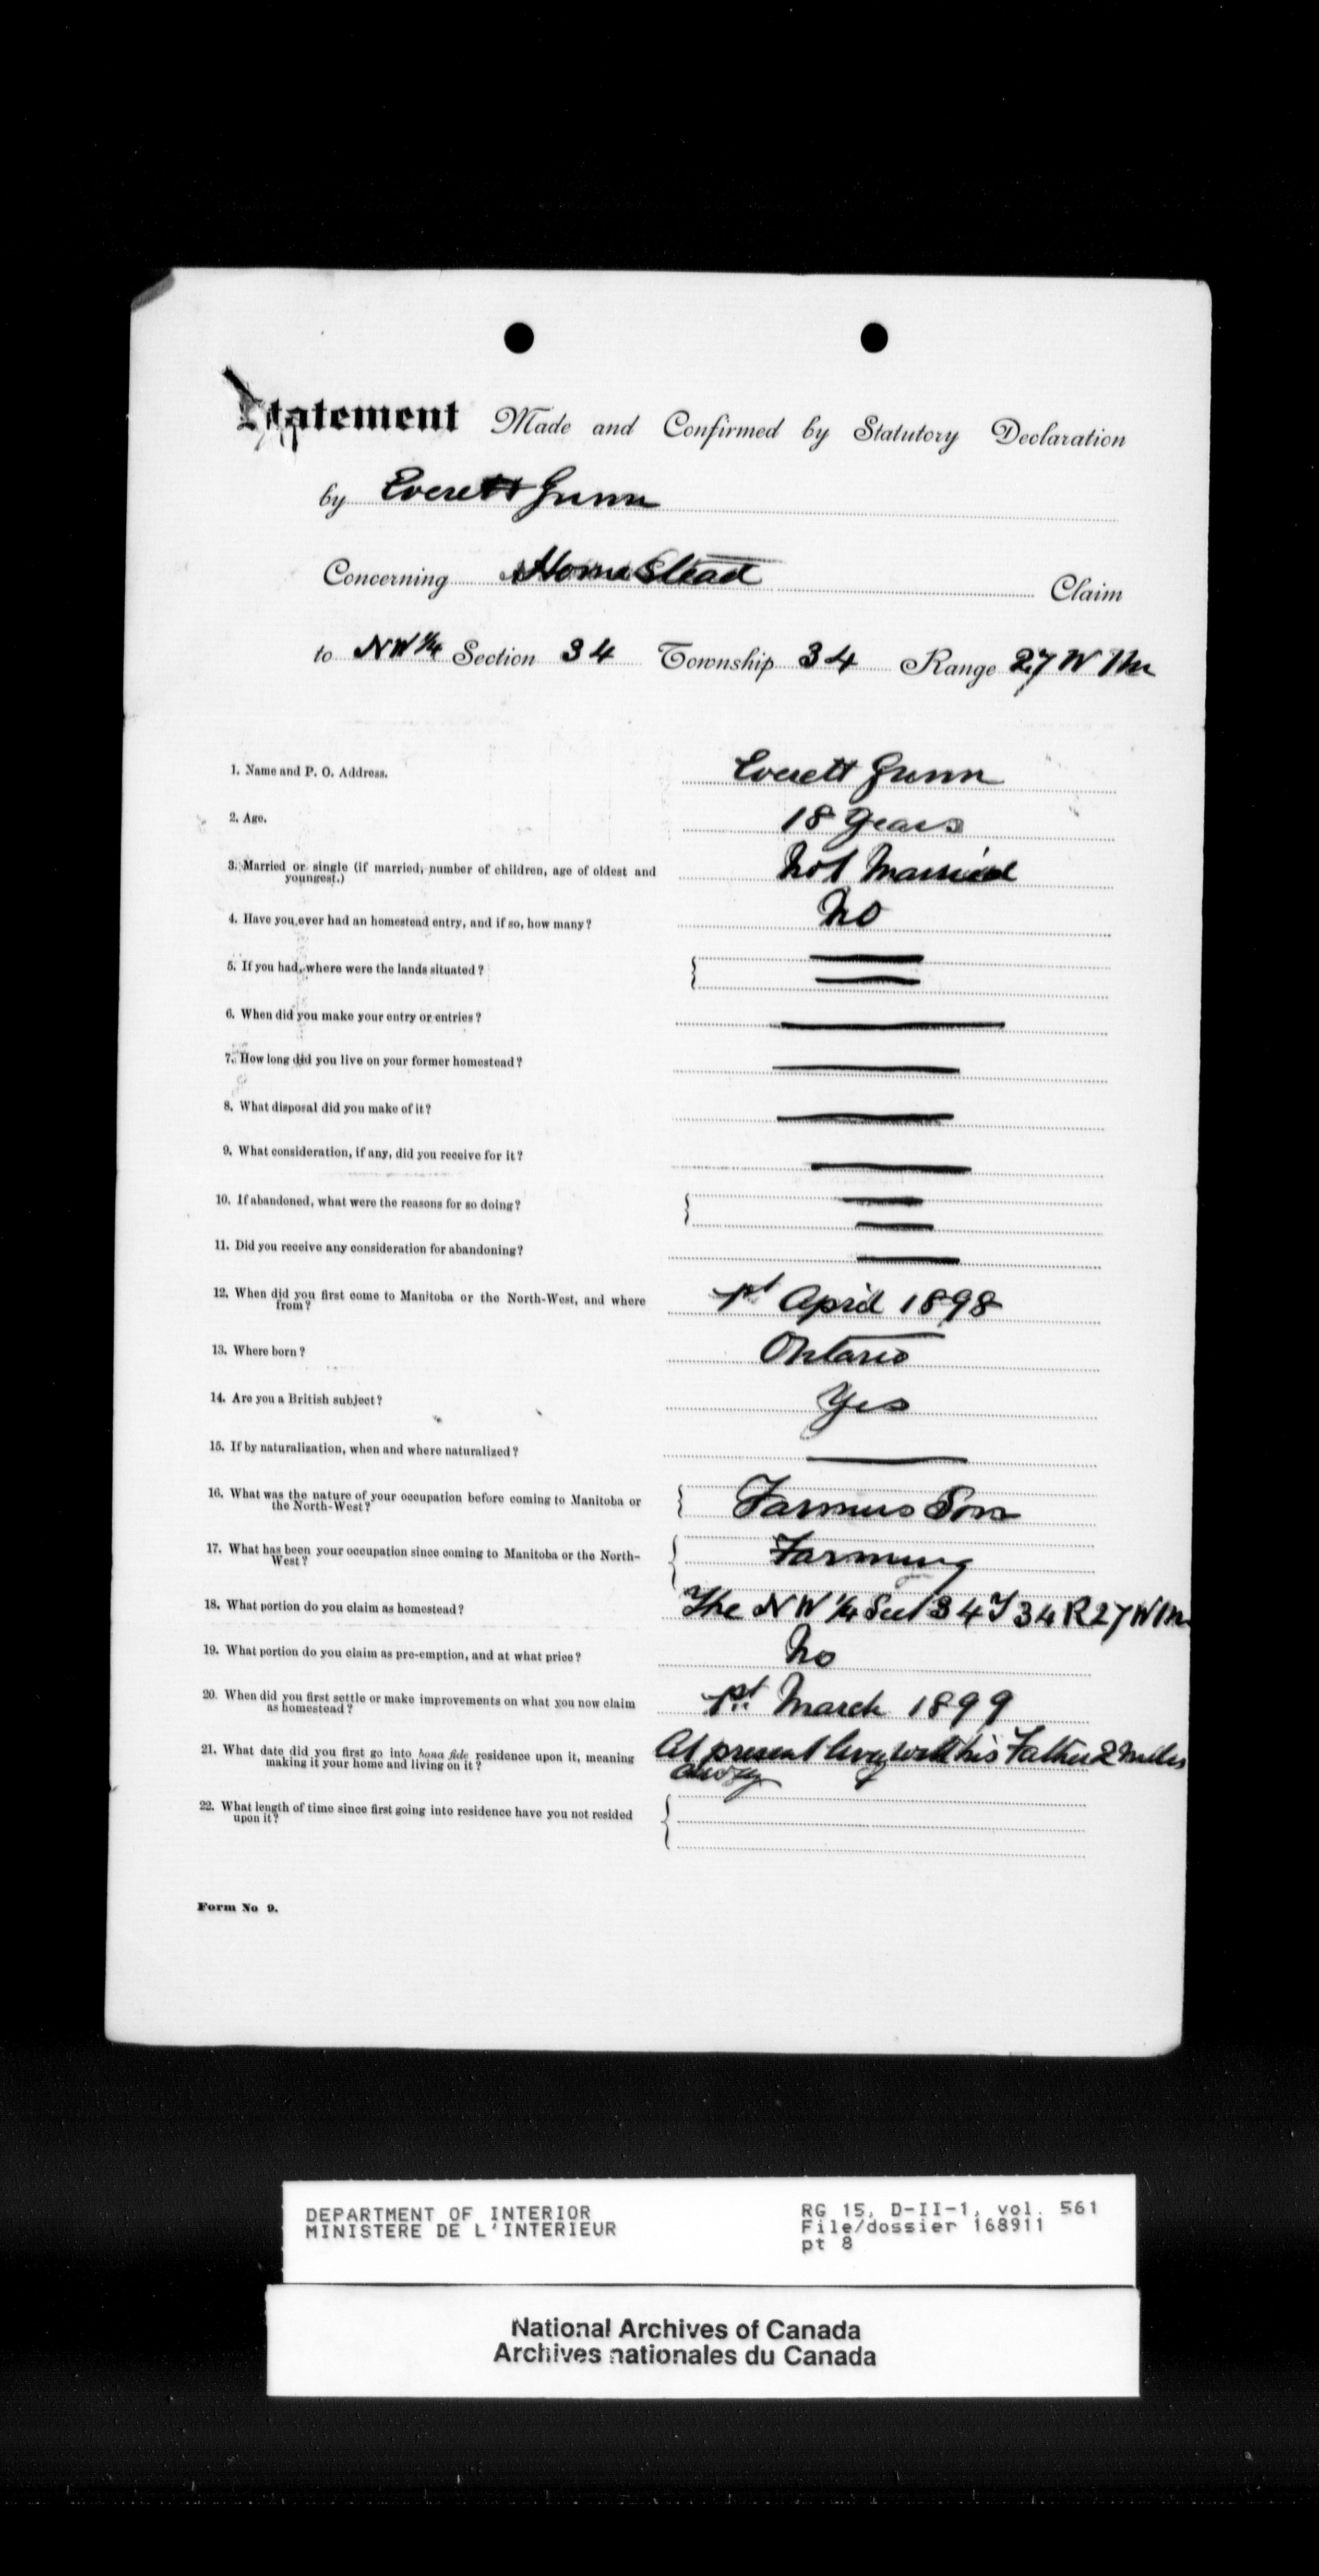 Statement Made and Confirmed by Statutory Declaration
by Everett Gunn
Concerning Homestead Claim
to NW 1/4 Section 34 Township 34 Range 27 W 1 M
1. Name and P. O. Address. Everett Gunn
2. Age. 18 Years
3. Married or single (if married, number of children, age of oldest and Not Married
youngest.)
4. Have you ever had an homestead entry, and if so, how many? No
5. If you had, where were the lands situated?
6. When did you make your entry or entries?
7. How long did you live on your former homestead?
8. What disposal did you make of it?
9. What consideration, if any, did you receive for it?
10. If abandoned, what were the reasons for so doing?
11. Did you receive any consideration for abandoning?
12. When did you first come to Manitoba or the North-West, and where 1st April 1898
from?
13. Where born? Ontario
14. Are you a British subject? Yes
15. If by naturalization, when and where naturalized?
16. What was the nature of your occupation before coming to Manitoba or Farmers Son
the North-West?
17. What has been your occupation since coming to Manitoba or the North- Farming
West?
18. What portion do you claim as homestead? The NW 1/4 Sec 34 T 34 R 27 W 1 M
19. What portion do you claim as pre-emption, and at what price? No
20. When did you first settle or make improvements on what you now claim 1st March 1899
as homestead?
21. What date did you first go into bona fide residence upon it, meaning At present living with his Father 2 Miles
making it your home and living on it? away
22. What length of time since first going into residence have you not resided
upon it?
Form No 9.
DEPARTMENT OF INTERIOR RG 15, D-II-1, vol. 561
MINISTERE DE L'INTERIEUR File/dossier 168911
pt 8
National Archives of Canada
Archives nationales du Canada